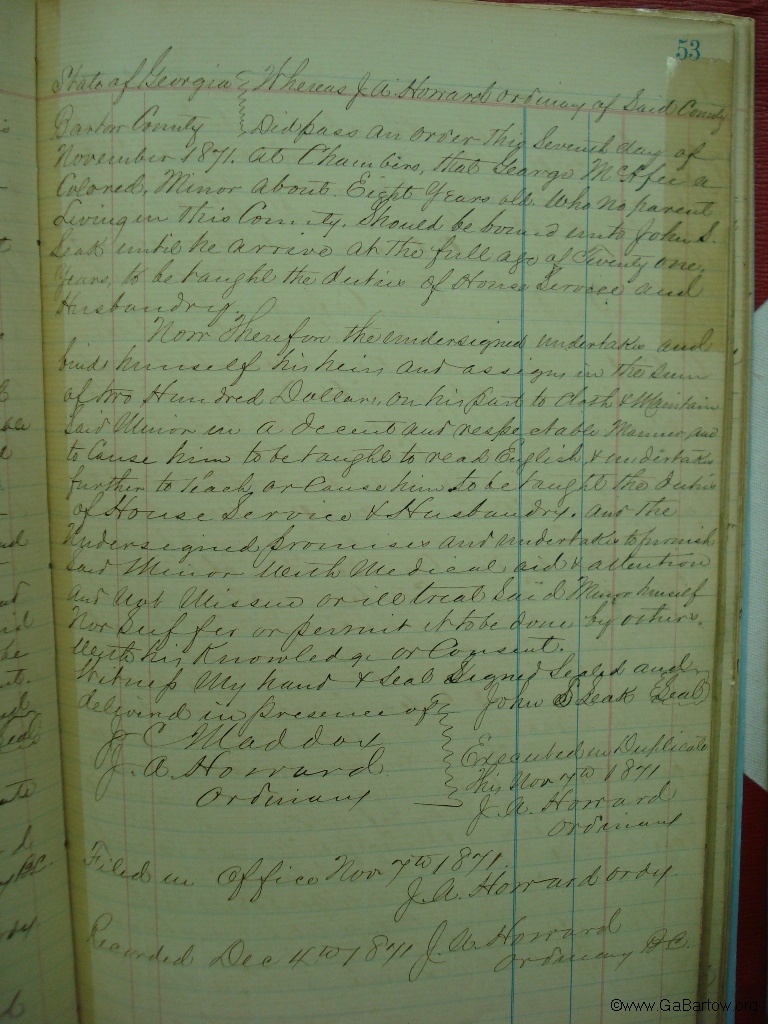 53
State of Georgia Whereas J. A. Howard ordinary of Said County
Bartow County Did pass an order this Seventh day of
November 1871. at Chambers, that George McAfee a
Colored, Minor about Eight Years old. Who no parent
Living in this County. Should be bound unto John S.
Leak until he arrive at the full age of Twenty one,
Years, to be taught the duties of House Service and
Husbandry.
Now Therefore the undersigned undertakes and
binds himself his heirs and assigns in the sum
of two Hundred Dollars, on his part to Cloth & Maintain
Said Minor in a decent and respectable Manner, and
to Cause him to be taught to read English & undertakes
further to Teach or Cause him to be taught the duties
of House Service & Husbandry. and the
Undersigned promises and undertakes to furnish
Said Minor With Medical aid & attention
and Not Missuse or ill treat Said Minor himself
Nor Suffer or permit it to be done by others.
With his Knowledge or Consent.
Witness My hand & Seal Signed Sealed and
delivered in presence of John S Leak Seal
J C Maddox
J. A. Howard
Ordinary
Executed in Duplicate
this Nov 7th 1871
J. A. Howard
Ordinary
Filed in Office Nov 7th 1871.
J. A. Howard ordy.
Recorded Dec 4th 1871 J. A. Howard
Ordinary B.C.
©www.GaBartow.org